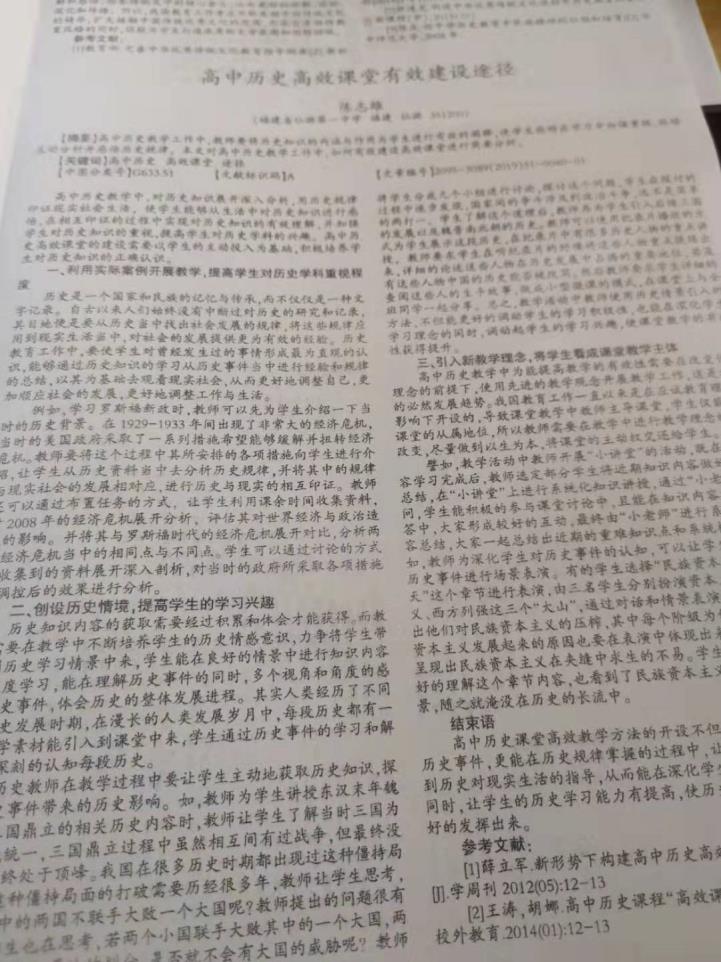 参考文献:
高中历史高效课堂有效建设途径
陈志雄
(福建省仙游第一中学 福建 仙游 351200)
【摘要】高中历史教学工作中,教师要将历史知识的内涵与作用为学生进行有效的
【关键词】高中历史 高效课堂 途径
【中图分类号】G633.51 【文献标识码】A 【文章编号】
高中历史教学中,对历史知识展开深入分析,用历史规律
印证现实社会生活,使学生能够从生活中对历史知识进行感
悟,在相互印证的过程中实现对历史知识的有效理解,并加强
学生对历史知识的重视,提高学生对历史学科的兴趣。高中历
史高效课堂的建设需要以学生的主动投入为基础,积极培养学
生对历史知识的正确认识。
一、利用实际案例开展教学,提高学生对历史学科重视程
度
历史是一个国家和民族的记忆与传承,而不仅仅是一种文
字记录。自古以来人们始终没有中断过对历史的研究和记录,
其目地便是要从历史当中找出社会发展的规律,将这些规律应
用到现实生活当中,对社会的发展提供更为有效的经验。历史
教育工作中,要使学生对曾经发生过的事情形成最为直观的认
识,能够通过历史知识的学习从历史事件当中进行经验和规律
的总结,以其为基础去观看现实社会,从而更好地调整自己,更
加顺应社会的发展,更好地调整工作与生活。
例如,学习罗斯福新政时,教师可以先为学生介绍一下当
时的历史背景。在1929-1933年间出现了非常大的经济危机,
当时的美国政府采取了一系列措施希望能够缓解并扭转经济
危机。教师要将这个过程中其所安排的各项措施向学生进行介
绍,让学生从历史资料当中去分析历史规律,并将其中的规律
与现实社会的发展相对应,进行历史与现实的相互印证。教师
可以通过布置任务的方式,让学生利用课余时间收集资料,
2008年的经济危机展开分析,评估其对世界经济与政治造
的影响。并将其与罗斯福时代的经济危机展开对比,分析两
经济危机当中的相同点与不同点。学生可以通过讨论的方式
收集到的资料展开深入剖析,对当时的政府所采取各项措施
调控后的效果进行分析。
二、创设历史情境,提高学生的学习兴趣
历史知识内容的获取需要经过积累和体会才能获得。而教
要在教学中不断培养学生的历史情感意识,力争将学生带
历史学习情景中来,学生能在良好的情景中进行知识内容
度学习,能在理解历史事件的同时,多个视角和角度的感
史事件,体会历史的整体发展进程。其实人类经历了不同
史发展时期,在漫长的人类发展岁月中,每段历史都有一
学素材能引入到课堂中来,学生通过历史事件的学习和解
深刻的认知每段历史。
历史教师在教学过程中要让学生主动地获取历史知识,探
史事件带来的历史影响。如,教师为学生讲授东汉末年魏
国鼎立的相关历史内容时,教师让学生了解当时三国为
统一,三国鼎立过程中虽然相互间有过战争,但最终没
终处于顶峰。我国在很多历史时期都出现过这种僵持局
这种僵持局面的打破需要历经很多年,教师让学生思考,
中的两国不联手大败一个大国呢?教师提出的问题很有
生也在思考,若两个小国联手大败其中的一个大国,两
是否就不会有大国的威胁呢?教师
将学生分成几个小组进行讨论,探讨这个问题,学生在探讨的
过程中逐步发现,国家间的争斗涉及到政治斗争,这不是简单
的两行一。学生了解这个道理后,教师再为学生引入后
的发展以及魏晋南北朝的历史。教师可以
式为学生展示这段历史,在纪录片
来,详细的论述这些人物在历史发展中占满的重要地位,若没
有这些人物中国的历史能否被改写。然后教师要求学生详细的
查阅这些人的生平故事,做成小型微课的模式,在课堂上与全
班同学一起分享。总之,教学活动中教师使用历史情景引入的
方法,不但能更好的调动学生的学习积极性,也能在深化学生
学习理念的同时,调动起学生的学习兴趣,使课堂教学的有
性获得提升。
三、引入新教学理念,将学生看成课堂教学主体
高中历史教学中为能提高教学的有效性需要在改变
理念的前提下,使用先进的教学观念开展教学工作,这是
的必然发展趋势。我国教育工作一直以来是在应试教育
影响下开设的,导致课堂教学中教师主导课堂,学生仅
课堂的从属地位,所以教师需要在教学中进行教学理念
改变,尽量做到以生为本,将课堂的主动权交还给学生。
譬如,教学活动中教师开展“小讲堂”的活动,既在
容学习完成后,教师选定部分学生将近期知识内容做
总结,在“小讲堂”上进行系统化知识讲授,通过“小老
问,学生能积极的参与课堂讨论中,且能在知识内容
答中,大家形成较好的互动,最终由“小老师”进行系
容总结,大家一起总结出近期的重难知识点和系统
如,教师为深化学生对历史事件的认知,可以让学
历史事件进行场景表演。有的学生选择“民族资本
天”这个章节进行表演,由三名学生分别扮演资本
义、西方列强这三个“大山”,通过对话和情景表演
出他们对民族资本主义的压榨,其中每个阶级为
资本主义发展起来的原因也要在表演中体现出来
呈现出民族资本主义在夹缝中求生的不易。学生
好的理解这个章节内容,也看到了民族资本主义
景,随之就淹没在历史的长流中。
结束语
高中历史课堂高效教学方法的开设不但
历史事件,更能在历史规律掌握的过程中,让
到历史对现实生活的指导,从而能在深化学
同时,让学生的历史学习能力有提高,使历
好的发挥出来。
参考文献:
[1]薛立军.新形势下构建高中历史高效
[J].学周刊2012(05):12-13
[2]王涛,胡娜.高中历史课程“高效课
校外教育.2014(01):12-13